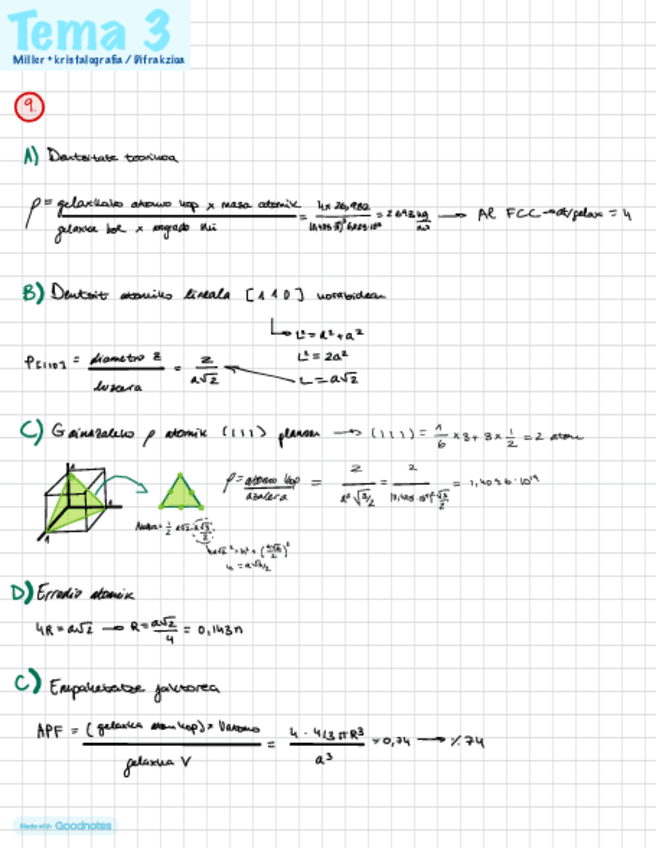 Tema 3
Miller + kristalografia / Difrakzioa
9.
A) Dentsitate teorikoa
ρ = gelaxkako atomo kop x masa atomik / gelaxka bol x avogadro zki = 4 x 26,982 / = kg/m³ → Al FCC → at/gelax = 4
B) Dentsit atomiko lineala [110] norabidean
L² = a² + a²
L² = 2a²
L = a√2
ρ[110] = diametro z / luzera = 2 / a√2
C) Gainazaleko ρ atomik (111) planoan → (111) = 1/6 x 3 + 3 x 1/2 = 2 atomo
ρ = atomo kop / azalera = 2 / a² √3/2 = 2 /
Azalera = 1/2 a√2 ·
D) Erradio atomik
4R = a√2 → R = a√2 / 4 = 0,143n
C) Empaketatze faktorea
APF = (gelaxka atom kop) x Vatomo / gelaxka V = 4 · 4/3 π R³ / a³ = 0,74 → % 74
Made with Goodnotes